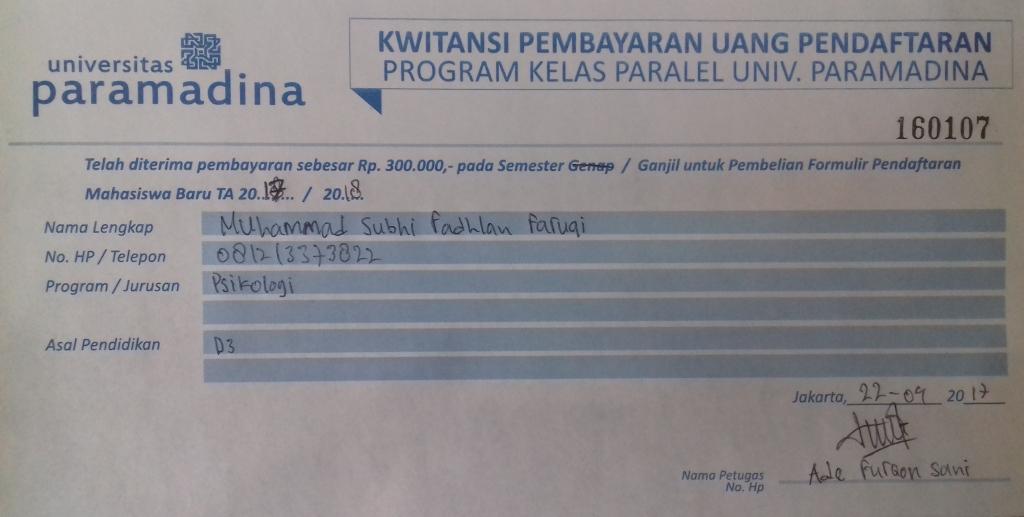 universitas
paramadina
KWITANSI PEMBAYARAN UANG PENDAFTARAN
PROGRAM KELAS PARALEL UNIV. PARAMADINA
160107
Telah diterima pembayaran sebesar Rp. 300.000,- pada Semester Genap / Ganjil untuk Pembelian Formulir Pendaftaran
Mahasiswa Baru TA 20.17... / 20.18.
Nama Lengkap Muhammad Subhi Fadhlan Faruqi
No. HP / Telepon 081213373822
Program / Jurusan Psikologi
Asal Pendidikan D3
Jakarta, 22-09 2017
Nama Petugas Ade Furqon Sani
No. Hp